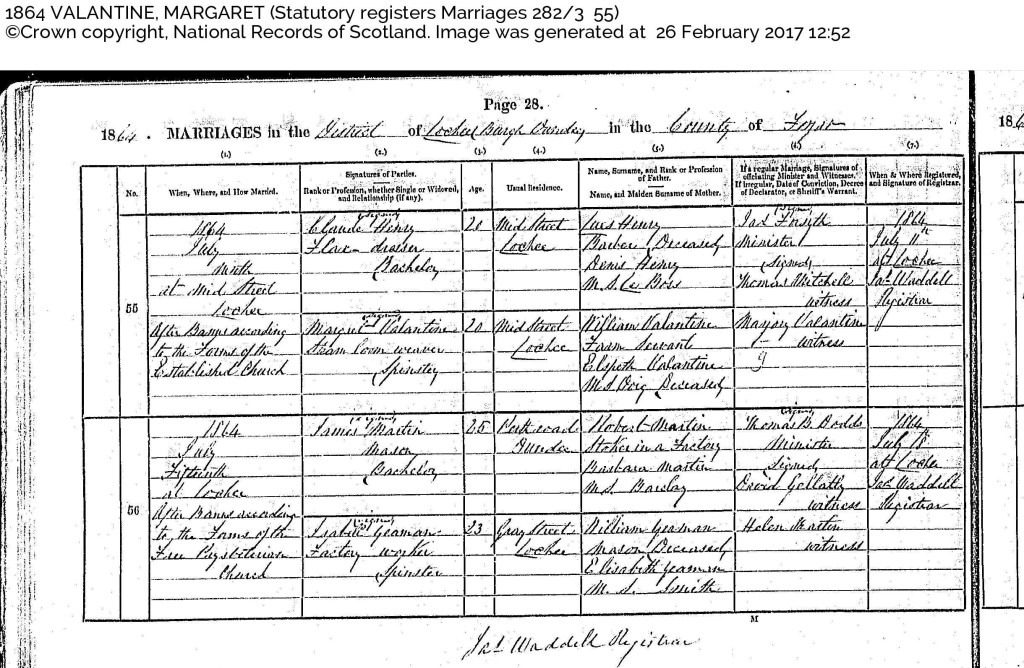 1864 VALANTINE, MARGARET (Statutory registers Marriages 282/3 55)
©Crown copyright, National Records of Scotland. Image was generated at 26 February 2017 12:52
Page 28.
1864. MARRIAGES in the District of Lochee Burgh Dundee in the County of
(1.) (2.) (3.) (4.) (5.) (6.) (7.)
No.
When, Where, and How Married.
Signatures of Parties.
Rank or Profession, whether Single or Widowed, and Relationship (if any).
Age.
Usual Residence.
Name, Surname, and Rank or Profession of Father.
Name, and Maiden Surname of Mother.
If a regular Marriage, Signatures of officiating Minister and Witnesses.
If irregular, Date of Conviction, Decree of Declarator, or Sheriff's Warrant.
When & Where Registered, and Signature of Registrar.
55
1864
July
Ninth
at Mid Street
Lochee
After Banns according
to the Forms of the
Established Church
(Signed)
Claude Henry
Flax-dresser
(Bachelor)
(Signed)
Margret Valantine
Steam loom weaver
(Spinster)
20
20
Mid Street
Lochee
Mid Street
Lochee
Henry
Barber (Deceased)
Denis Henry
M.S.
William Valantine
Farm Servant
Elspeth Valantine
M.S. Doig (Deceased)
(Signed)
Jas Forsyth
Minister
(Signed)
Thomas Mitchell
witness
Marjory Valantine
witness
1864
July 11th
at Lochee
Jas. Waddell
Registrar
56
1864
July
Fifteenth
at Lochee
After Banns according
to the Forms of the
Free Presbyterian
Church
(Signed)
James Martin
Mason
(Bachelor)
(Signed)
Isabella Yeaman
Factory worker
(Spinster
25
23
Dundee
Gray Street
Lochee
Robert Martin
Stoker in a Factory
Barbara Martin
M.S. Barclay
William Yeaman
Mason (Deceased)
Elisabeth Yeaman
M. S. Smith
(Signed)
Thomas B. Dodds
Minister
(Signed)
David Gellatly
witness
Helen Martin
witness
1864
July
at Lochee
Jas. Waddell
Registrar
M
Jas. Waddell Registrar
186